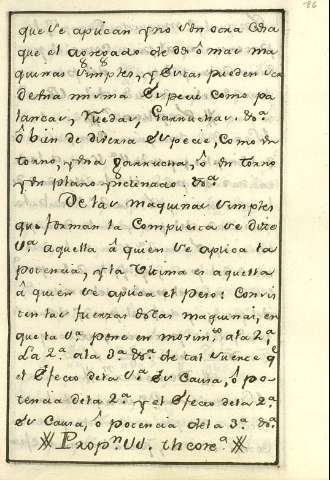 86
que se aplican y no son otra cosa
que el agregado de dos ô mas ma
quinas simples, y Estas pueden ser
de una misma Especie como pa
lancas, Ruedas, Garruchas. &ª.
ô bien de diversa Especie, como un
torno, y una garrucha, ô un torno
y un plano ynclinado. &ª.
De las maquinas simples
que forman la Compuesta se dice
1ª. aquella â quien se aplica la
potencia, y la Ultima es aquella
â quien se aplica el peso: Consis
ten las fuerzas destas maquinas, en
que la 1ª. pone en movimᵗᵒ. ala 2ª.
La 2ª. ala 3ª. &ª. de tal suerte q̃
el Efecto dela 1ª. Es Causa, ô po-
tencia dela 2ª. y el Efecto dela 2ª.
Es Causa, ô potencia dela 3ª. &ª.
Propⁿ. theoreᵃ.